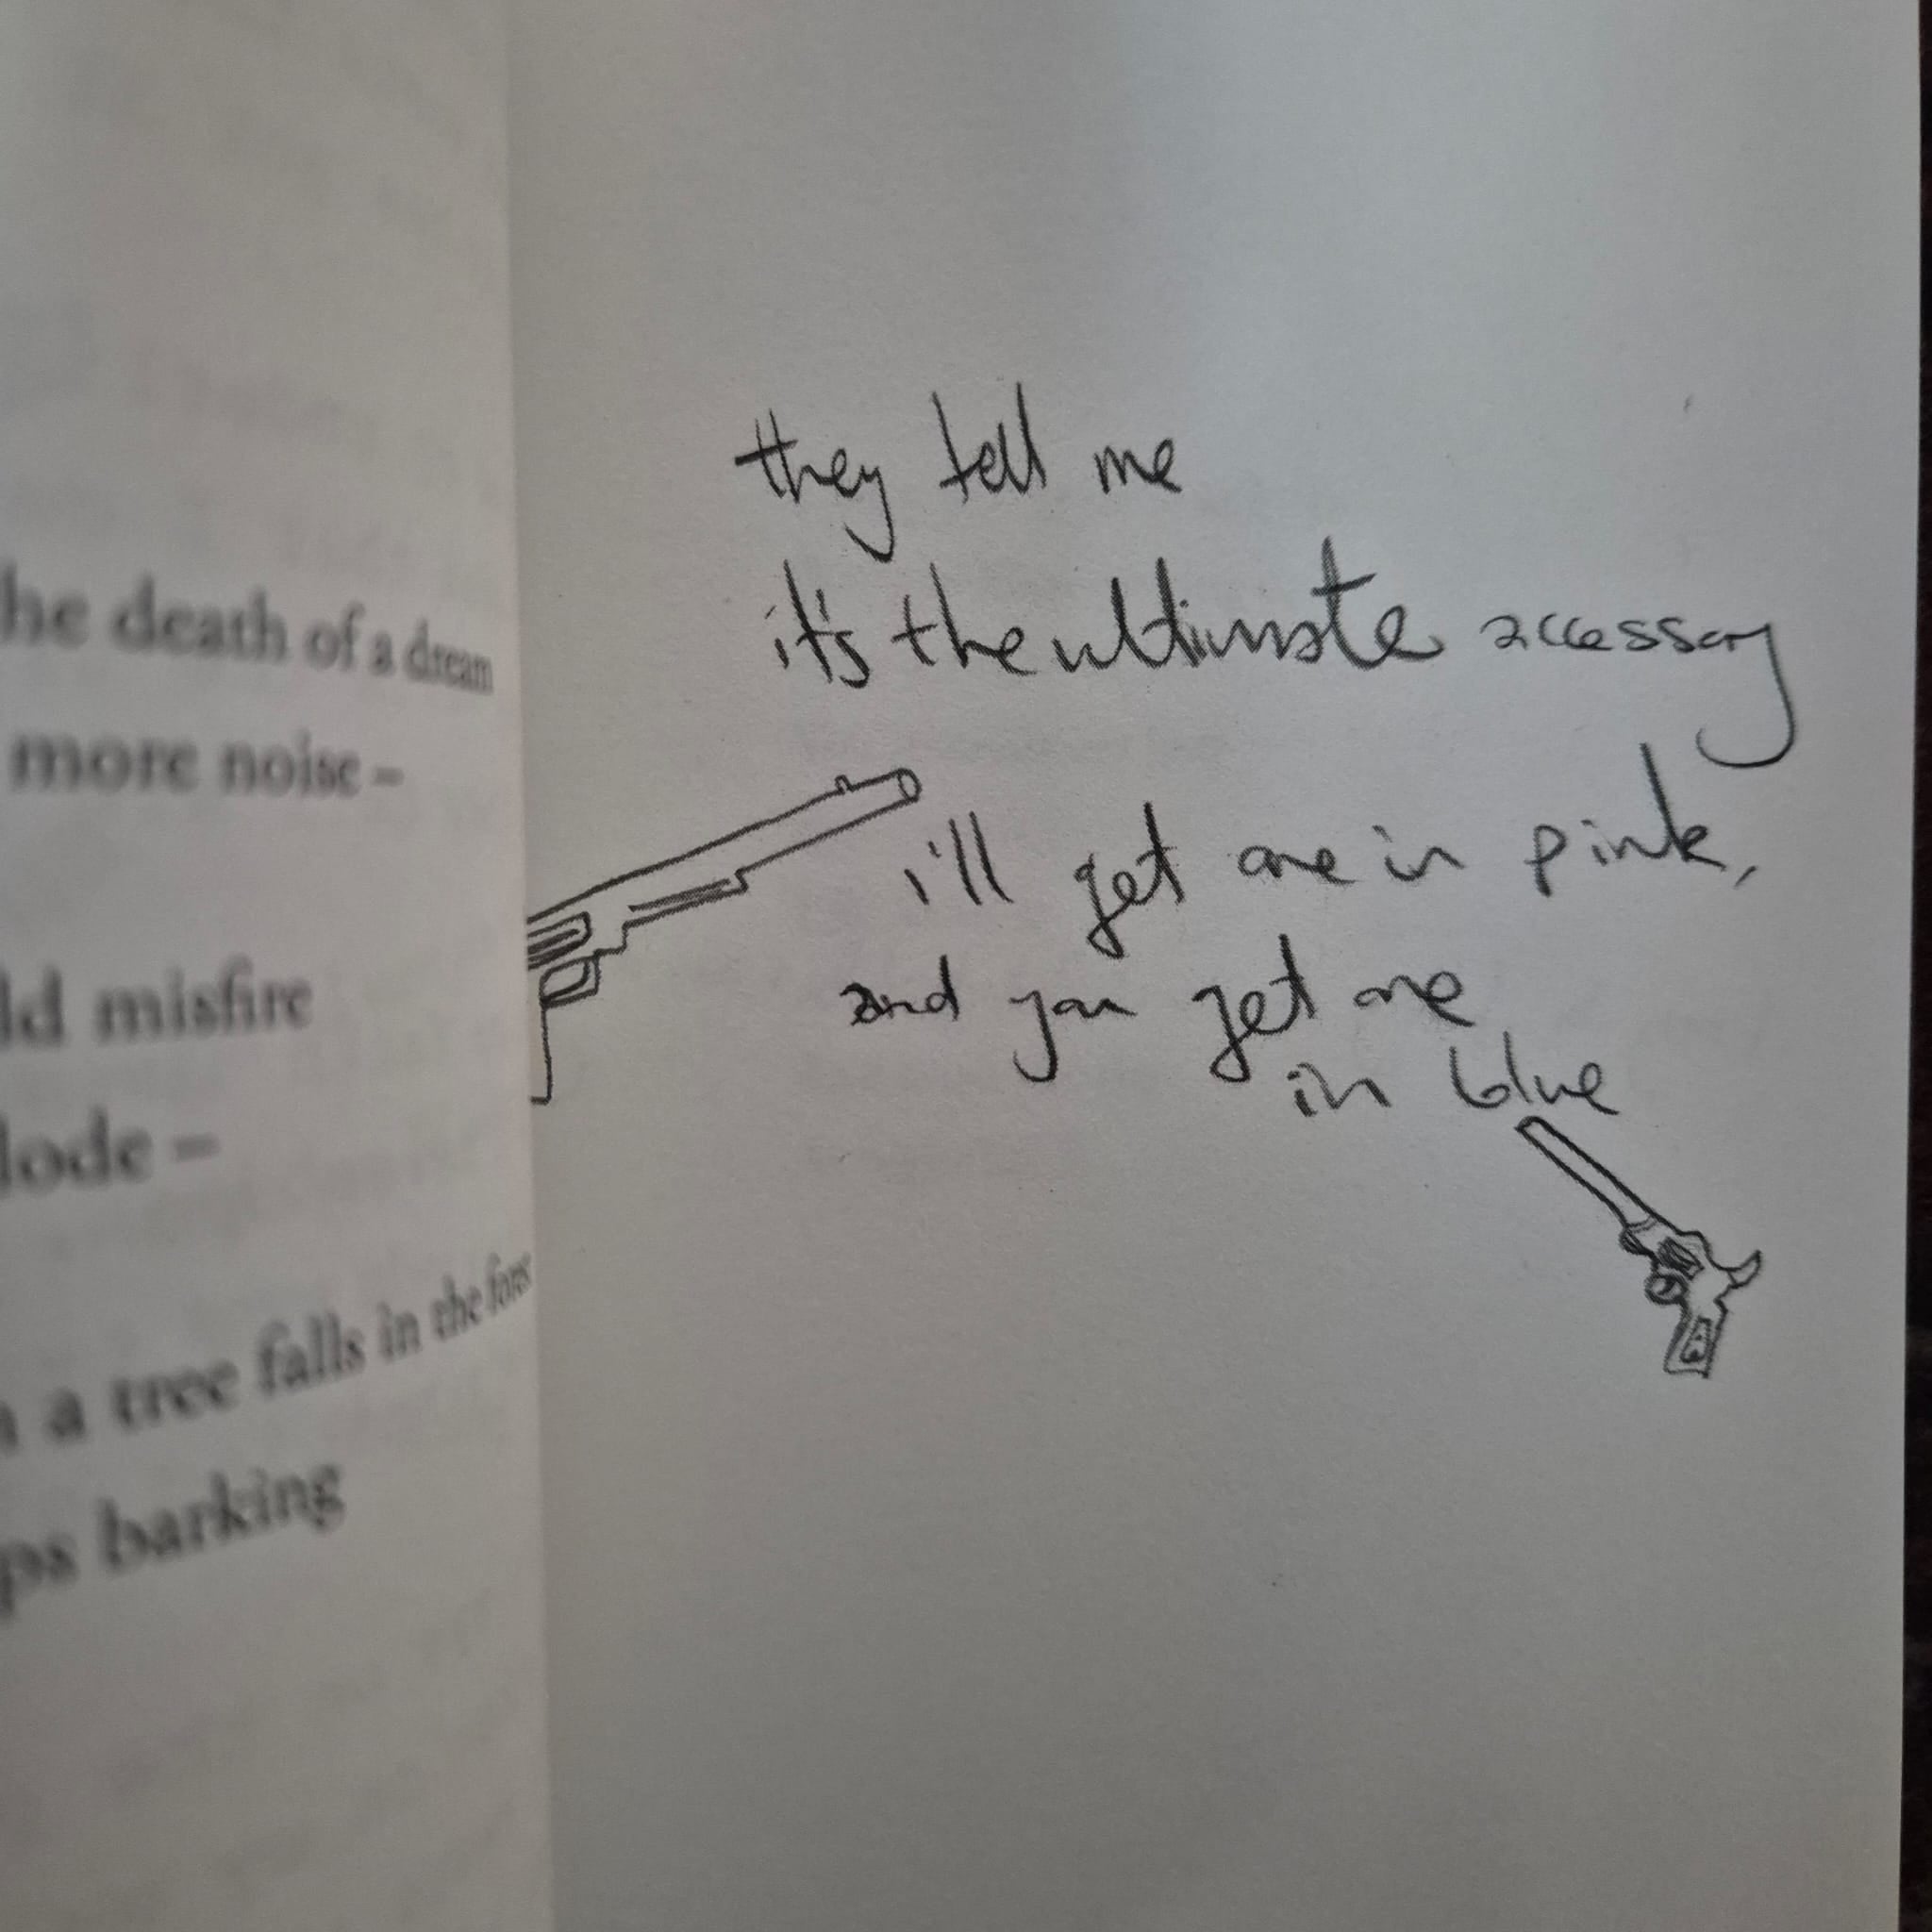 he death of a dream
more noise –
ld misfire
lode –
a tree falls in the forest
ps barking
they tell me
it's the ultimate accessory
i'll get one in pink,
and you get one
in blue